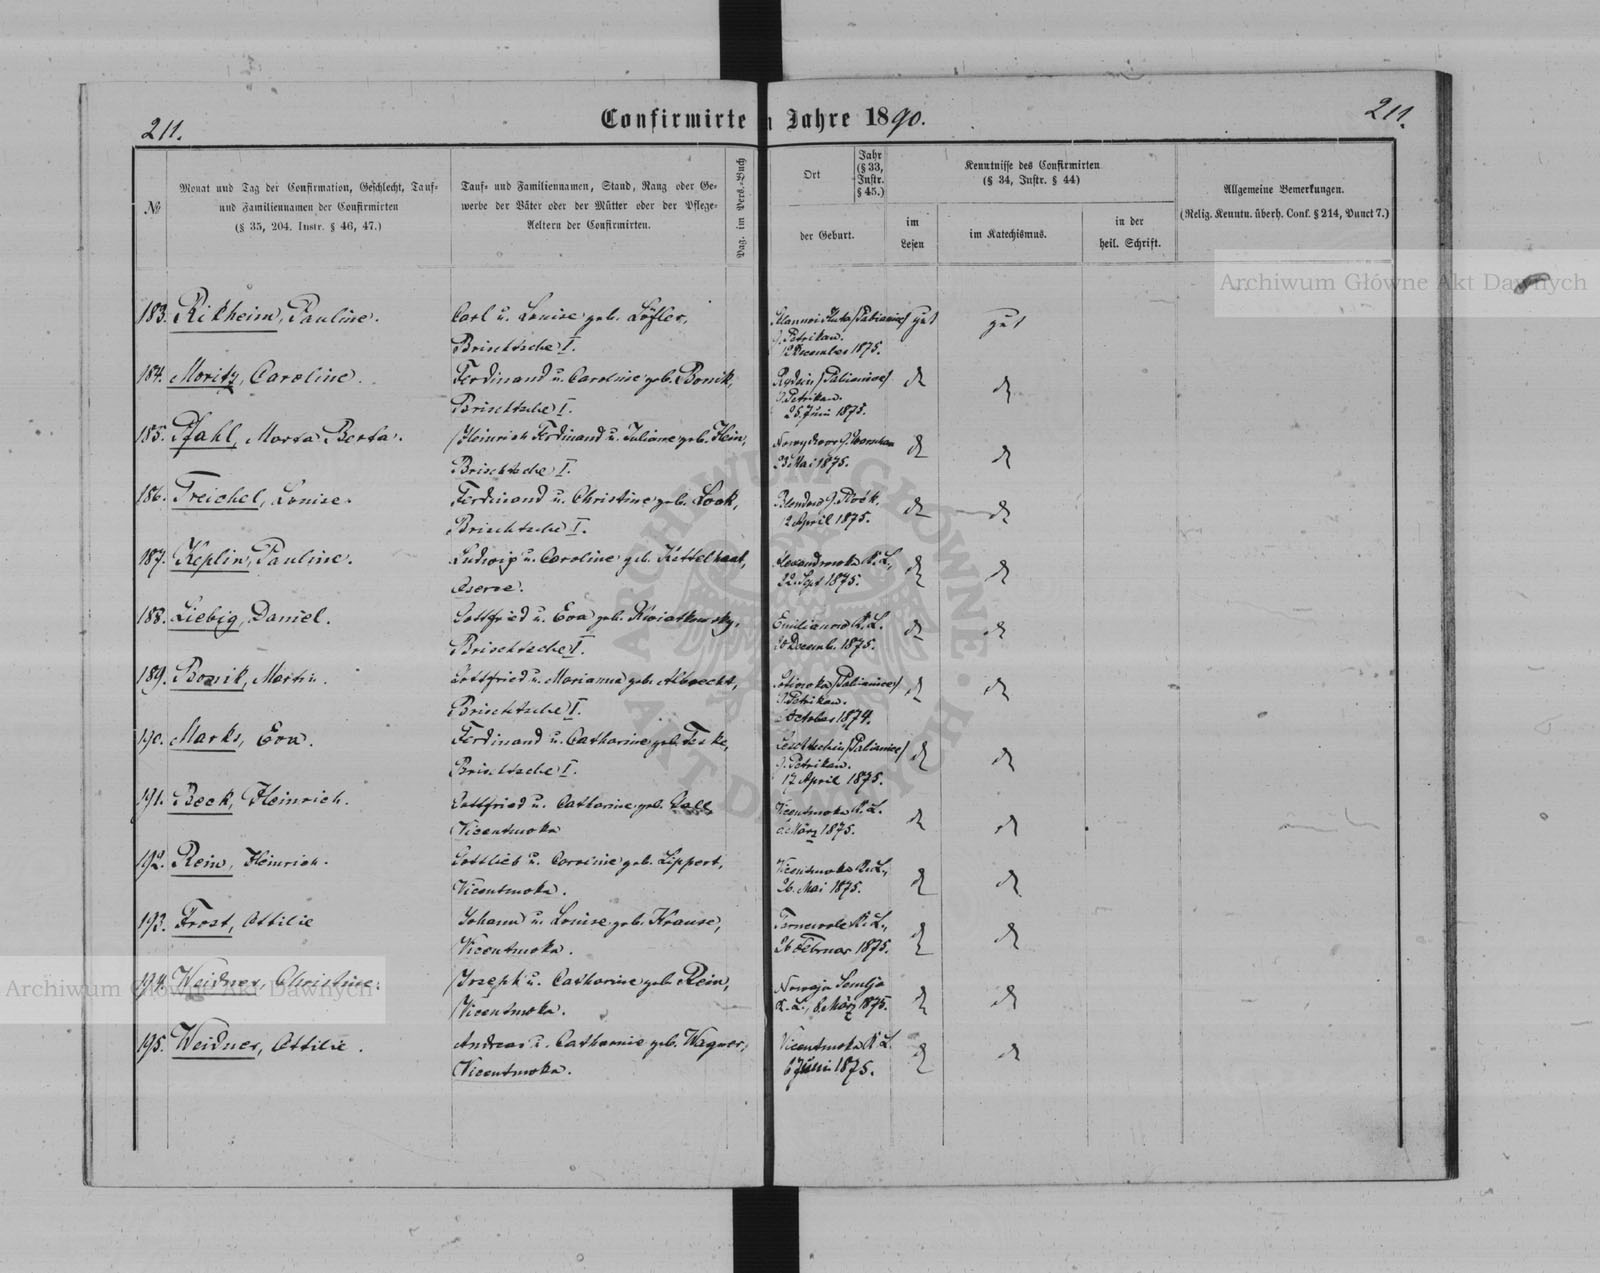 211.
Confirmirte
Jahre 1890.
211.
№
Monat und Tag der Confirmation, Geschlecht, Tauf-
und Familiennamen der Confirmirten
(§ 35, 204. Instr. § 46, 47.)
Tauf- und Familiennamen, Stand, Rang oder Ge-
werbe der Väter oder der Mütter oder der Pflege-
Aeltern der Confirmirten.
Pag. im Pers.-Buch
Ort
Jahr
(§ 33,
Instr.
§ 45.)
der Geburt.
Kenntnisse des Confirmirten
(§ 34, Instr. § 44)
im
Lesen
im Katechismus.
in der
heil. Schrift.
Allgemeine Bemerkungen.
(Relig. Kenntn. überh. Conf. § 214, Punct 7.)
183. Rikheim, Pauline.
Carl u. Louise geb. Löfler,
Brischtsche I.
(Pabianice) gut gut
G. Petrikau.
12 December 1875.
184. Moritz, Caroline.
Ferdinand u. Caroline geb. Bonik,
Brischtsche I.
(Pabianice)
G. Petrikau.
25. Juni 1875.
185. Pfahl, Marta Berta.
Heinrich Ferdinand u. Juliane geb. Hein,
Brischtsche I.
23 Mai 1875.
186. Treichel, Louise.
Ferdinand u. Christine geb. Look,
Brischtsche I.
12 April 1875.
187. Keplin, Pauline.
Ludwig u. Caroline geb. Kettelhaut,
Oserze.
Alexandrowka K. L.,
22. Sept 1875.
188. Liebig, Daniel.
Gottfried u. Eva geb. Kwiatkowsky,
Brischtsche I.
Emilianow K. L.
20 Decemb. 1875.
189. Bonik, Martin.
Gottfried u. Marianna geb. Albrecht,
Brischtsche I.
(Pabianice)
G. Petrikau.
October 1874.
190. Marks, Eva.
Ferdinand u. Catharine geb. Teske,
Brischtsche I.
(Pabianice)
G. Petrikau.
12 April 1875.
191. Beck, Heinrich.
Gottfried u. Catharine geb.
Vicentowka
Vicentowka K. L.
März 1875.
192. Rein, Heinrich.
Gottlieb u. Caroline geb. Lippert,
Vicentowka.
Vicentowka K. L.,
26. Mai 1875.
193. Frost, Ottilie
Johann u. Louise geb. Krause,
Vicentowka.
K. L.,
26 Februar 1875.
194. Weidner, Christine.
Joseph u. Catharine geb. Rein,
Vicentowka.
Nowaja Semlja
K. L., 8. März 1875.
195. Weidner, Ottilie.
Andreas u. Catharine geb. Wagner,
Vicentowka.
Vicentowka K. L.
6 Juni 1875.
Archiwum Główne Akt Dawnych
Archiwum Główne Akt Dawnych
ARCHIWUM GŁÓWNE AKT DAWNYCH